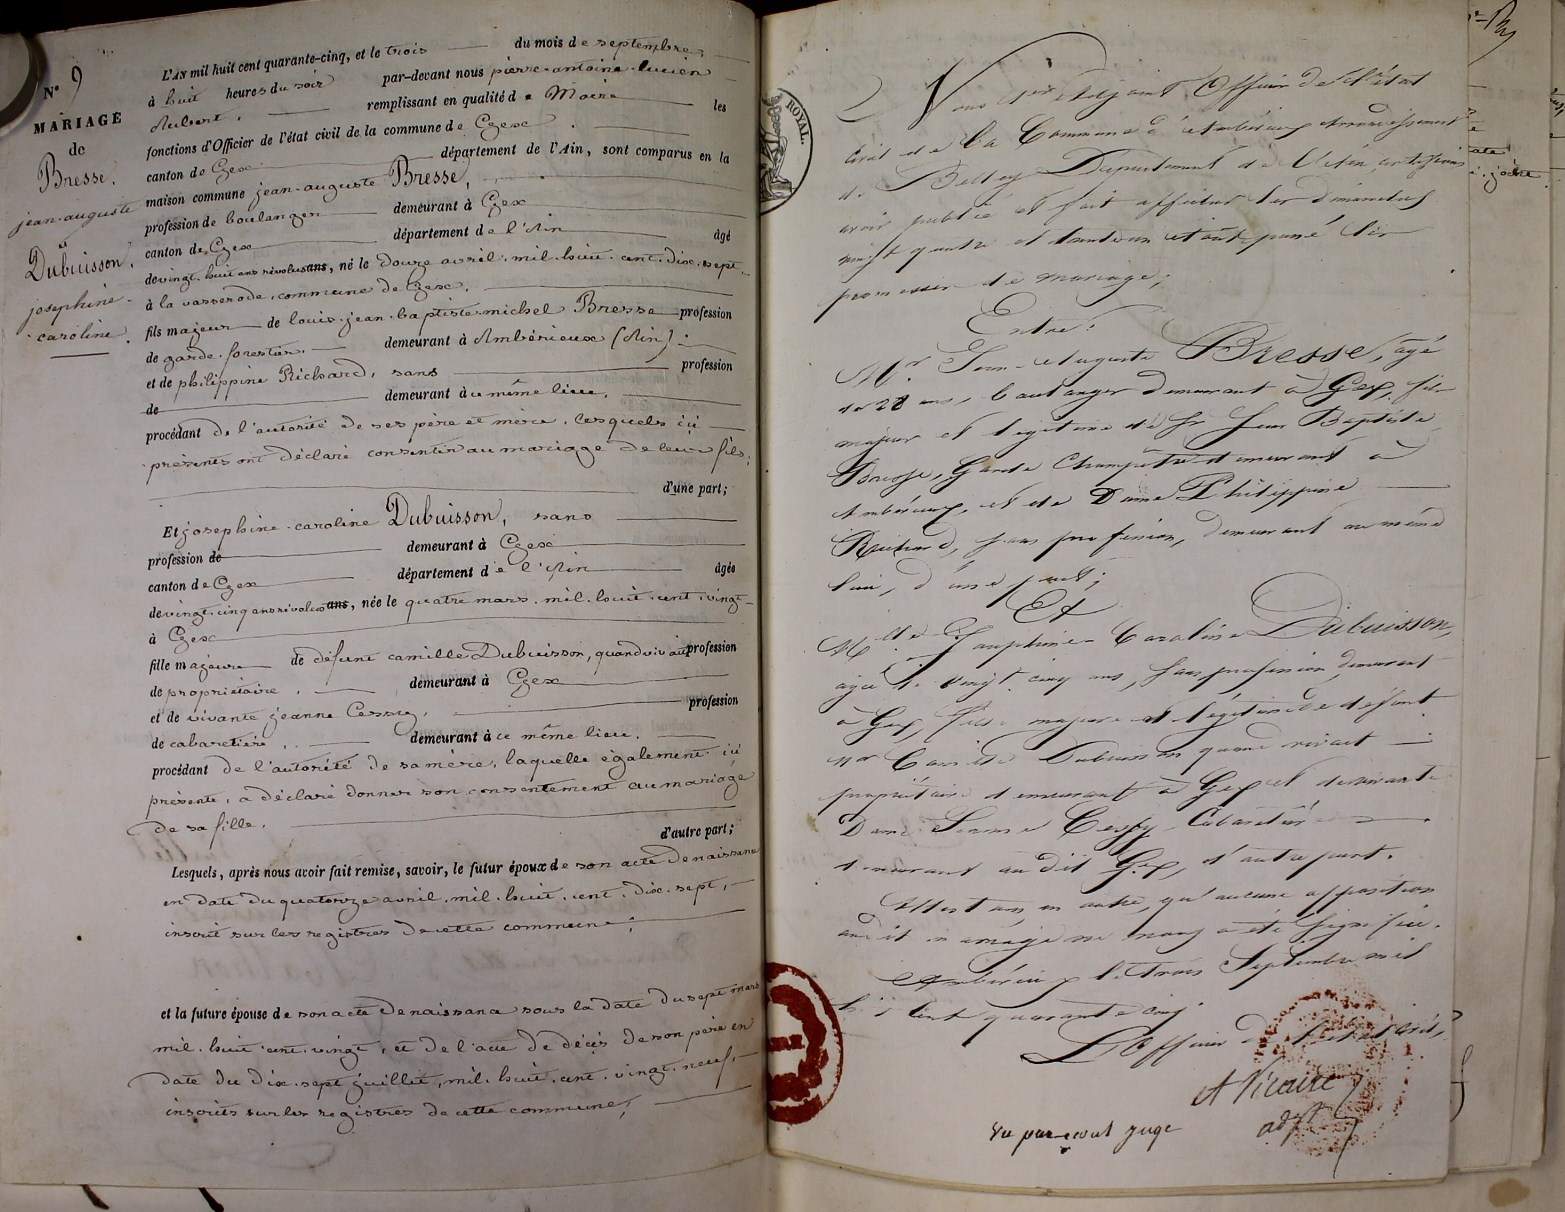 N° 9
MARIAGE
de
Bresse.
jean-auguste
et
Dubuisson.
josephine-
caroline.
L'AN mil huit cent quarante-cinq, et le trois du mois de septembre,
à huit heures du soir par-devant nous pierre-antoine-lucien
Aubert, remplissant en qualité de Maire les
fonctions d'Officier de l'état civil de la commune de Gex
canton de Gex département de l'Ain, sont comparus en la
maison commune jean-auguste Bresse,
profession de boulanger demeurant à Gex
canton de Gex département de l'Ain âgé
de vingt-huit ans révolus ans, né le douze avril mil huit cent dix-sept
à la vasserode, commune de Gex,
fils majeur de louis-jean-baptiste-michel Bresse profession
de garde-forestier demeurant à Ambérieux (Ain)
et de philippine Richard, sans profession
de demeurant à ce même lieu,
procédant de l'autorité de ses père et mère, lesquels ici
présents ont déclaré consentir au mariage de leur fils,
d'une part;
Et josephine-caroline Dubuisson, sans
profession de demeurant à Gex
canton de Gex département de l'Ain âgée
de vingt-cinq ans révolus ans, née le quatre mars mil huit cent vingt
à Gex
fille majeure de défunt camille Dubuisson, quand vivait profession
de propriétaire, demeurant à Gex
et de vivante jeanne Cessy, profession
de cabaretière, demeurant à ce même lieu,
procédant de l'autorité de sa mère, laquelle également ici
présente, a déclaré donner son consentement au mariage
de sa fille,
d'autre part;
Lesquels, après nous avoir fait remise, savoir, le futur époux de son acte de naissance
en date du quatorze avril mil huit cent dix-sept,
inscrit sur les registres de cette commune;
et la future épouse de son acte de naissance sous la date du sept mars
mil huit cent vingt, et de l'acte de décès de son père en
date du dix-sept juillet mil huit cent vingt-neuf,
inscrits sur les registres de cette commune,
ROYAL.
Nous Adjoint Officier de l'état
civil de la Commune d'Ambérieux Arrondissement
de Belley Département de l'Ain, certifions
avoir publié et fait afficher les dimanches
vingt quatre et trente un Août passé les
promesses de mariage,
Entre:
Mr Jean-Auguste Bresse, agé
de 28 ans, boulanger demeurant à Gex, fils
majeur et légitime de Sr Jean Baptiste
Bresse, Garde Champêtre demeurant à
Ambérieux, et de Dame Philippine
Richard, sans profession, demeurant au même
lieu, d'une part;
Et
Mlle Josephine Caroline Dubuisson,
agée de vingt cinq ans, sans profession, demeurant
à Gex, fille majeure et légitime de défunt
Mr Camille Dubuisson quand vivait
propriétaire demeurant à Gex et de vivante
Dame Jeanne Cessy Cabaretière
demeurant au dit Gex, d'autre part.
Attestons, en outre, qu'aucune opposition
au dit mariage ne nous a été signifiée.
Ambérieux le trois Septembre mil
huit cent quarante cinq
L'Officier de l'état civil,
A Vicaire
adjt
Vu par nous juge